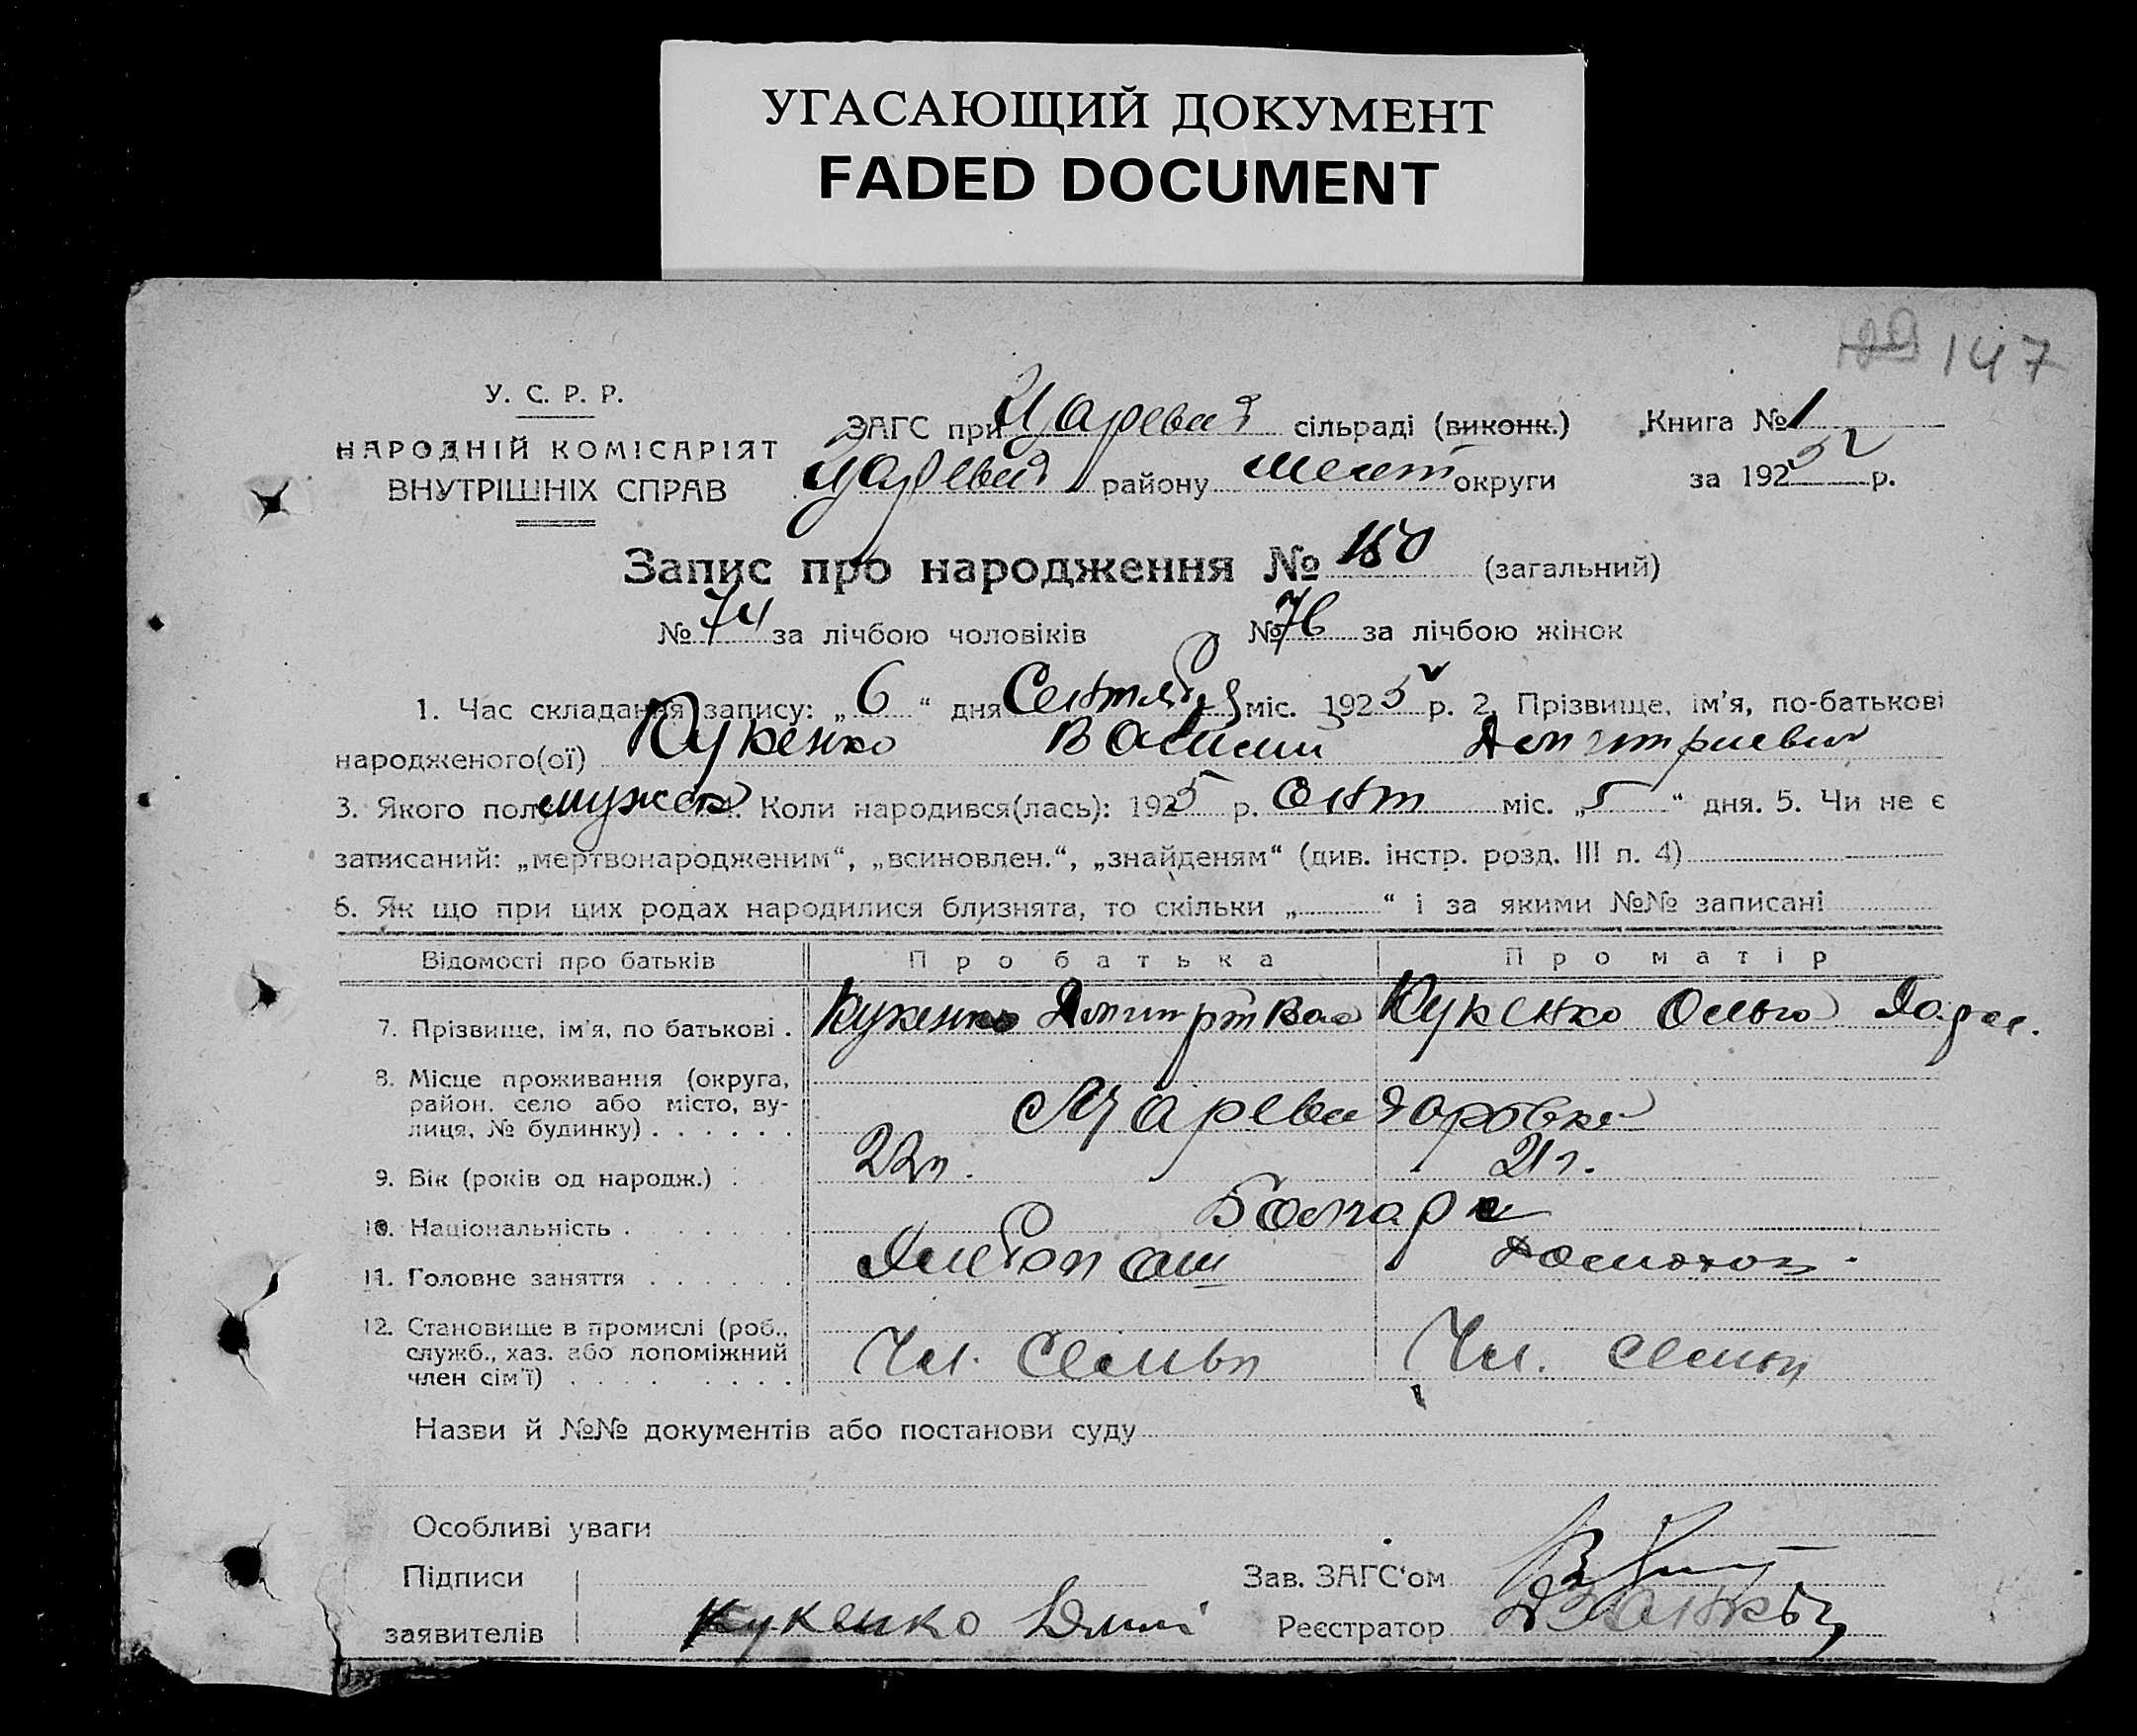 УГАСАЮЩИЙ ДОКУМЕНТ
FADED DOCUMENT
147
У. С. Р. Р.
НАРОДНІЙ КОМІСАРІЯТ
ВНУТРІШНІХ СПРАВ
ЗАГС при Царевод сільраді (виконк.)
Царевод району Мелит округи
Книга № 1
за 1925 р.
Запис про народження № 150 (загальний)
№ 74 за лічбою чоловіків № 76 за лічбою жінок
1. Час складання запису: „ 6 “ дня Сентября міс. 1925 р. 2. Прізвище, ім’я, по-батькові
народженого(ої) Кукенко Василий Дмитриевич
3. Якого полу мужск 4. Коли народився(лась): 1925 р. Сент міс. „ 5 “ дня. 5. Чи не є
записаний: „мертвонародженим“, „всиновлен.“, „знайденям“ (див. інстр. розд. III п. 4)
6. Як що при цих родах народилися близнята, то скільки „ “ і за якими №№ записані
Відомості про батьків Про батька Про матір
7. Прізвище, ім’я, по батькові . Кукенко Дмитрт Вас Кукенко Ольга
8. Місце проживання (округа,
район, село або місто, ву-
лиця, № будинку) . . . . . .
9. Вік (років од народж.) . 22л. 21 г.
10. Національність . Болгаре
11. Головне заняття . . . . . . Хлебопаш Домохоз.
12. Становище в промислі (роб.,
служб., хаз. або допоміжний
член сім’ї) . . . . . . . . Чл. Семьи Чл. семьи
Назви й №№ документів або постанови суду
Особливі уваги
Підписи
заявителів Кукенко Дмит
Зав. ЗАГС‘ом
Реєстратор